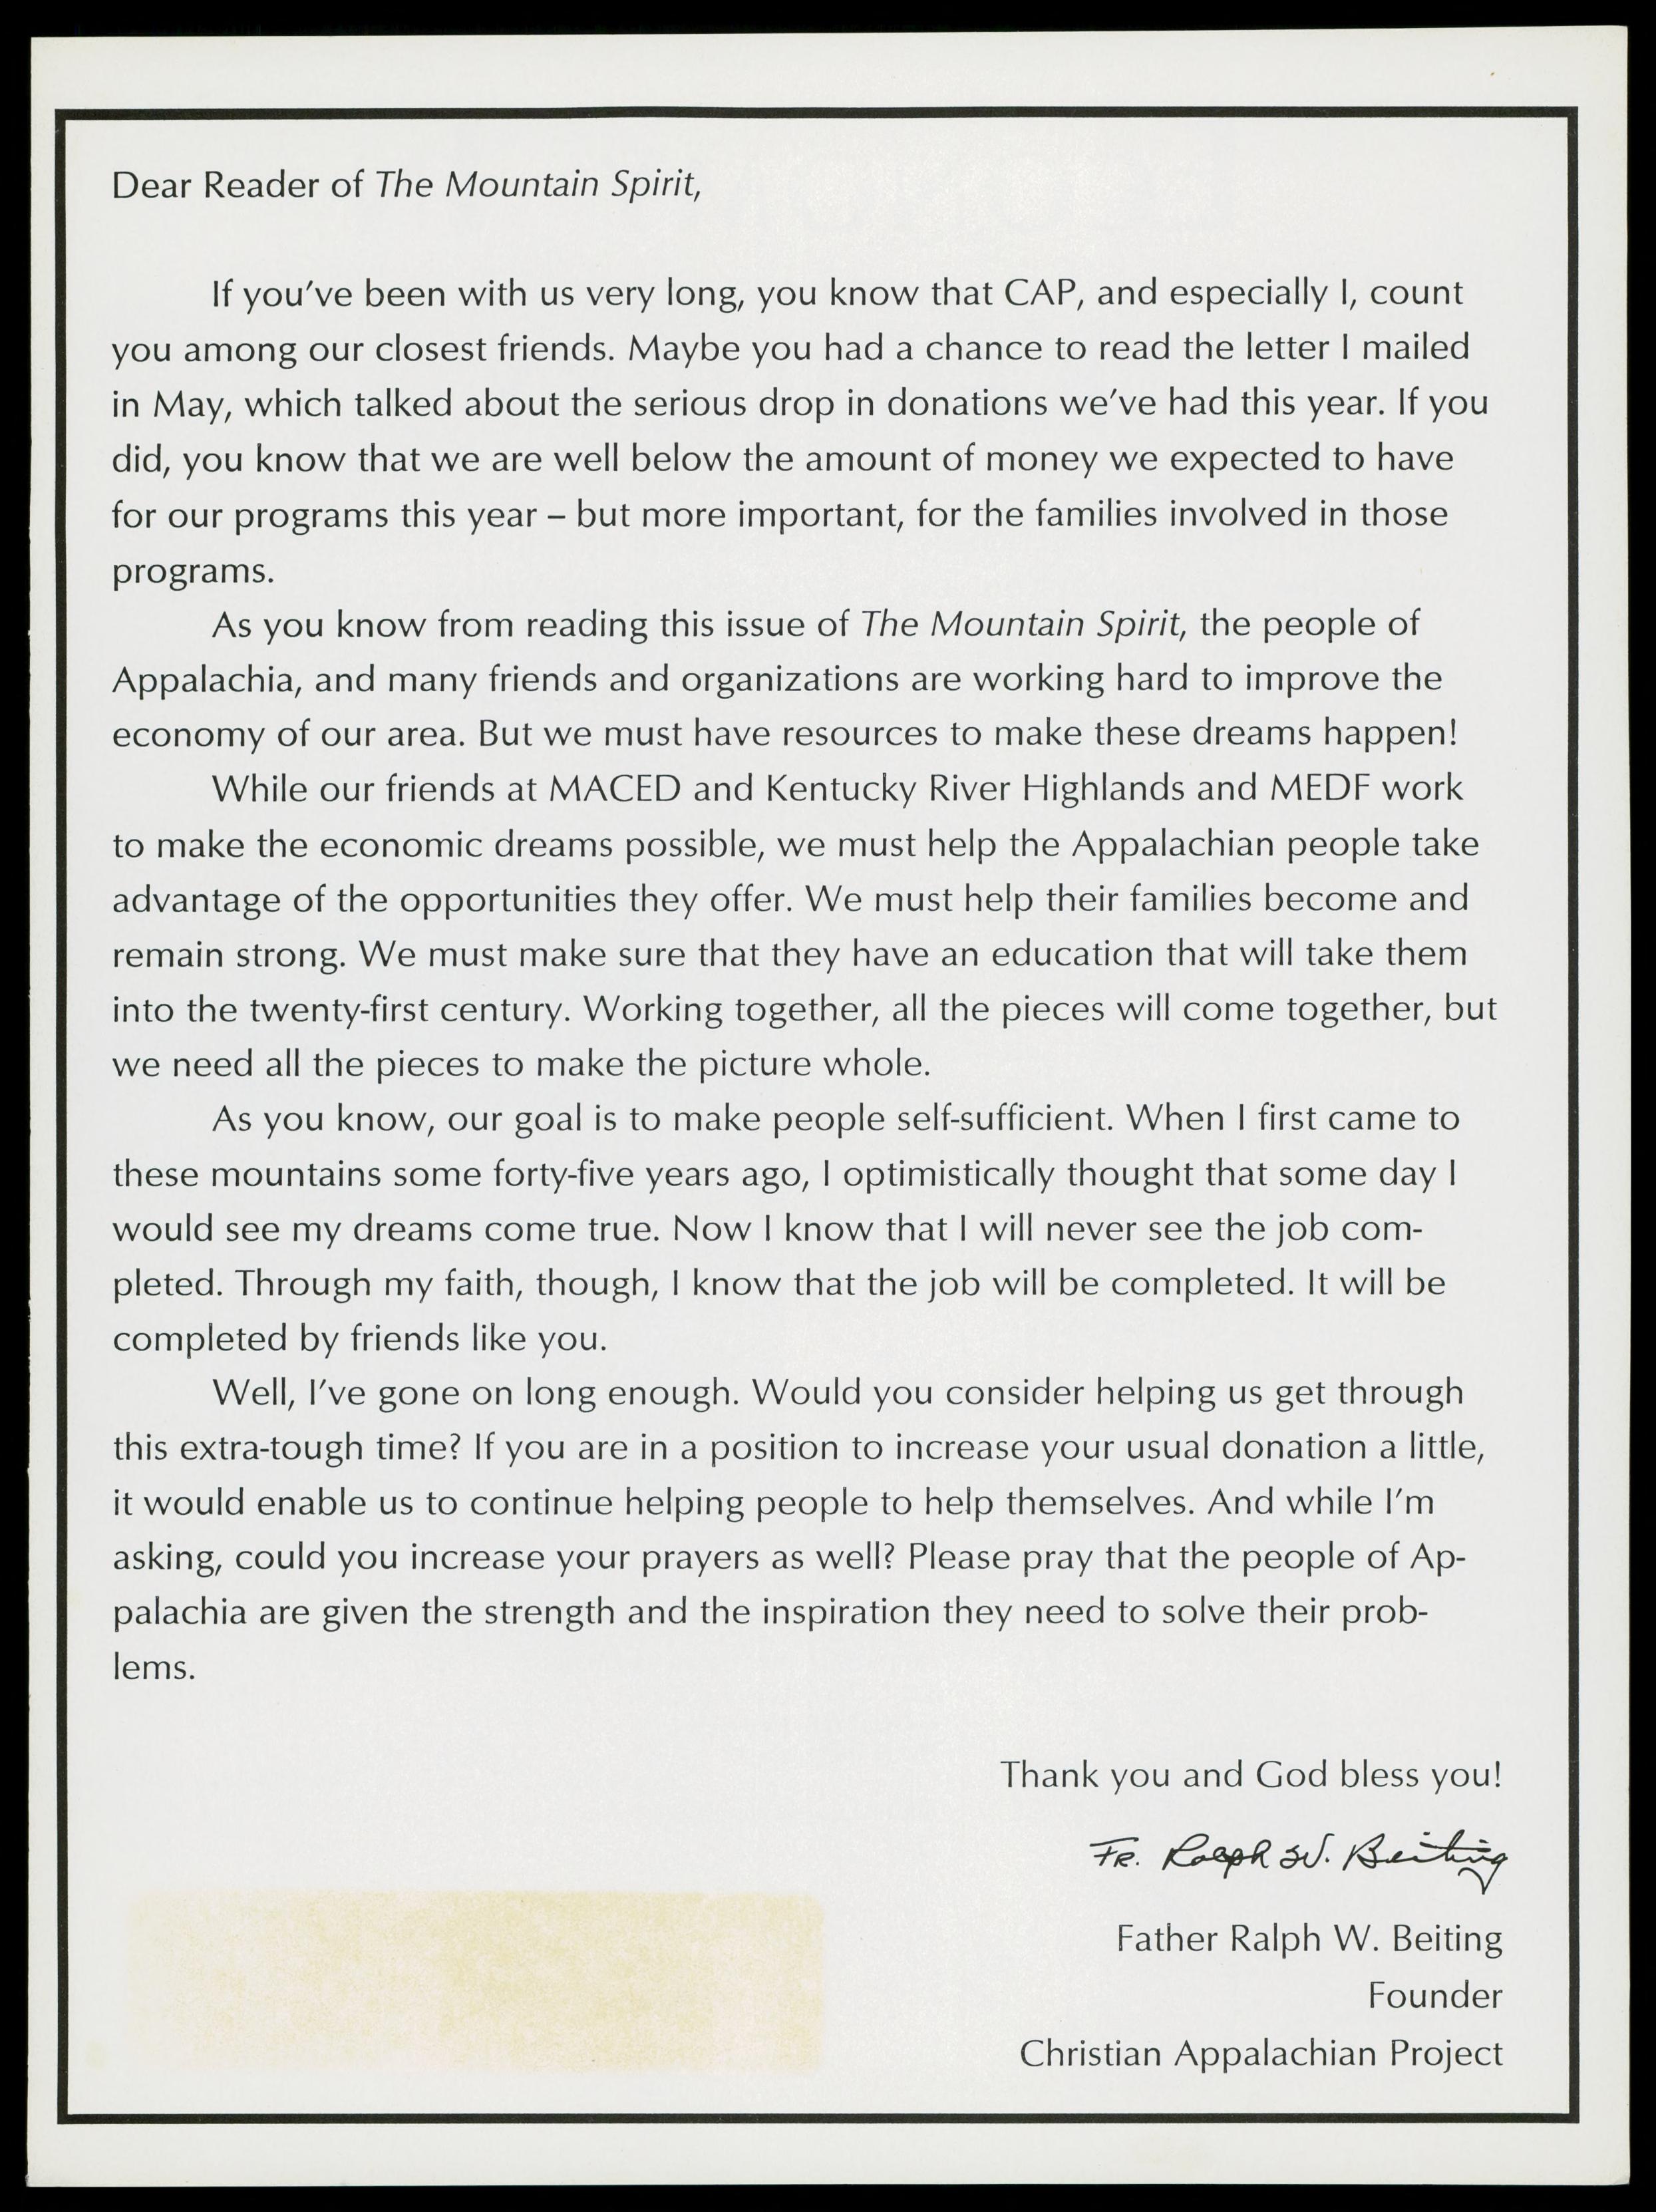 Dear Reader of The Mountain Spirit,
If you've been with us very long, you know that CAP, and especially I, count
you among our closest friends. Maybe you had a chance to read the letter I mailed
in May, which talked about the serious drop in donations we've had this year. If you
did, you know that we are well below the amount of money we expected to have
for our programs this year – but more important, for the families involved in those
programs.
As you know from reading this issue of The Mountain Spirit, the people of
Appalachia, and many friends and organizations are working hard to improve the
economy of our area. But we must have resources to make these dreams happen!
While our friends at MACED and Kentucky River Highlands and MEDF work
to make the economic dreams possible, we must help the Appalachian people take
advantage of the opportunities they offer. We must help their families become and
remain strong. We must make sure that they have an education that will take them
into the twenty-first century. Working together, all the pieces will come together, but
we need all the pieces to make the picture whole.
As you know, our goal is to make people self-sufficient. When I first came to
these mountains some forty-five years ago, I optimistically thought that some day I
would see my dreams come true. Now I know that I will never see the job com-
pleted. Through my faith, though, I know that the job will be completed. It will be
completed by friends like you.
Well, I've gone on long enough. Would you consider helping us get through
this extra-tough time? If you are in a position to increase your usual donation a little,
it would enable us to continue helping people to help themselves. And while I'm
asking, could you increase your prayers as well? Please pray that the people of Ap-
palachia are given the strength and the inspiration they need to solve their prob-
lems.
Thank you and God bless you!
Fr. Ralph W. Beiting
Father Ralph W. Beiting
Founder
Christian Appalachian Project